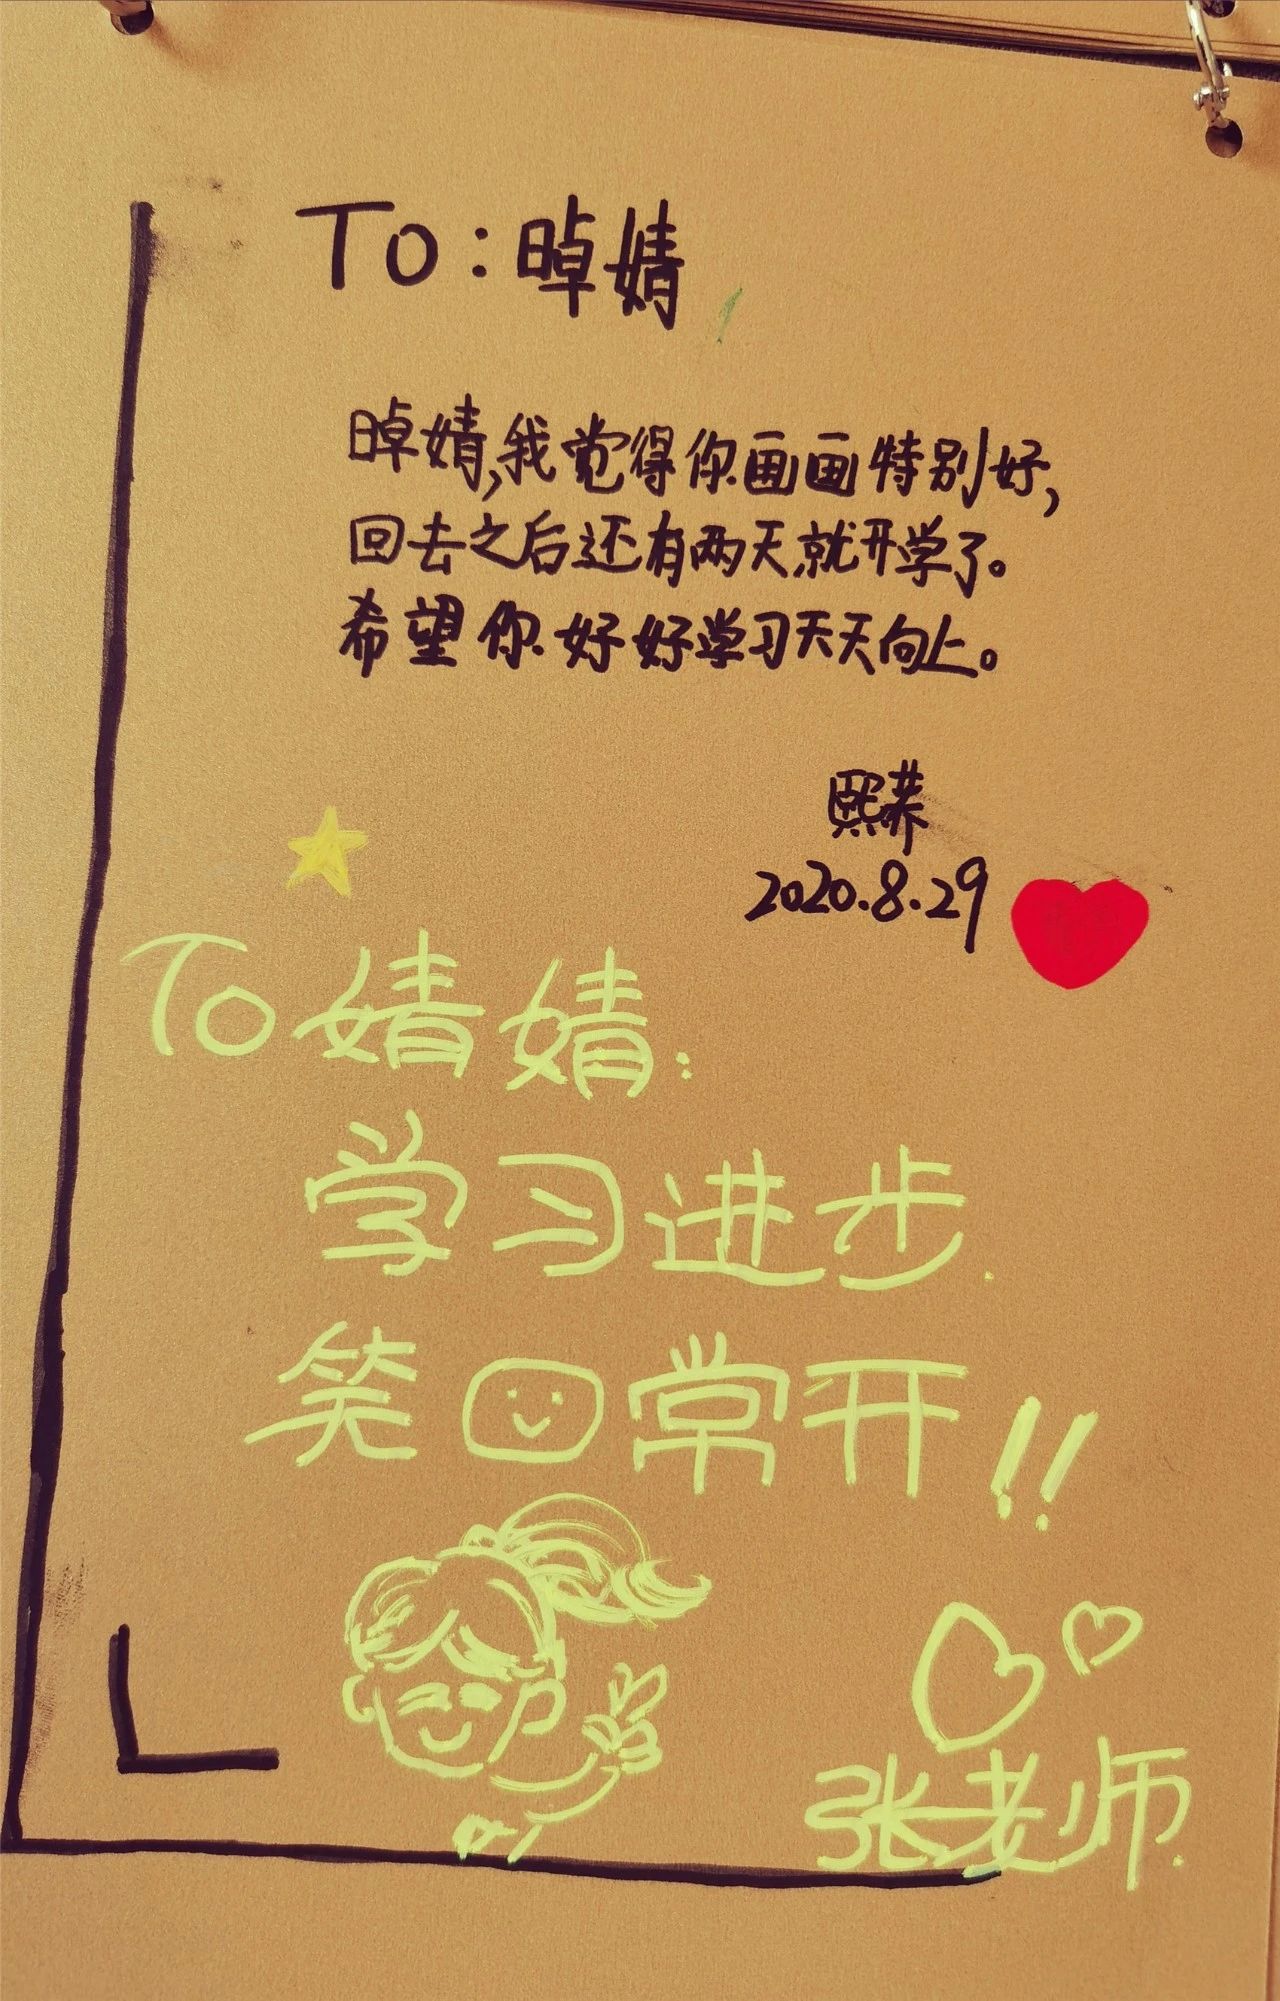 To：晫婧
晫婧,我觉得你画画特别好,
回去之后还有两天就开学了。
希望你好好学习天天向上。
熙荞
2020.8.29
To 婧婧：
学习进步.
笑口常开!!
张老师.